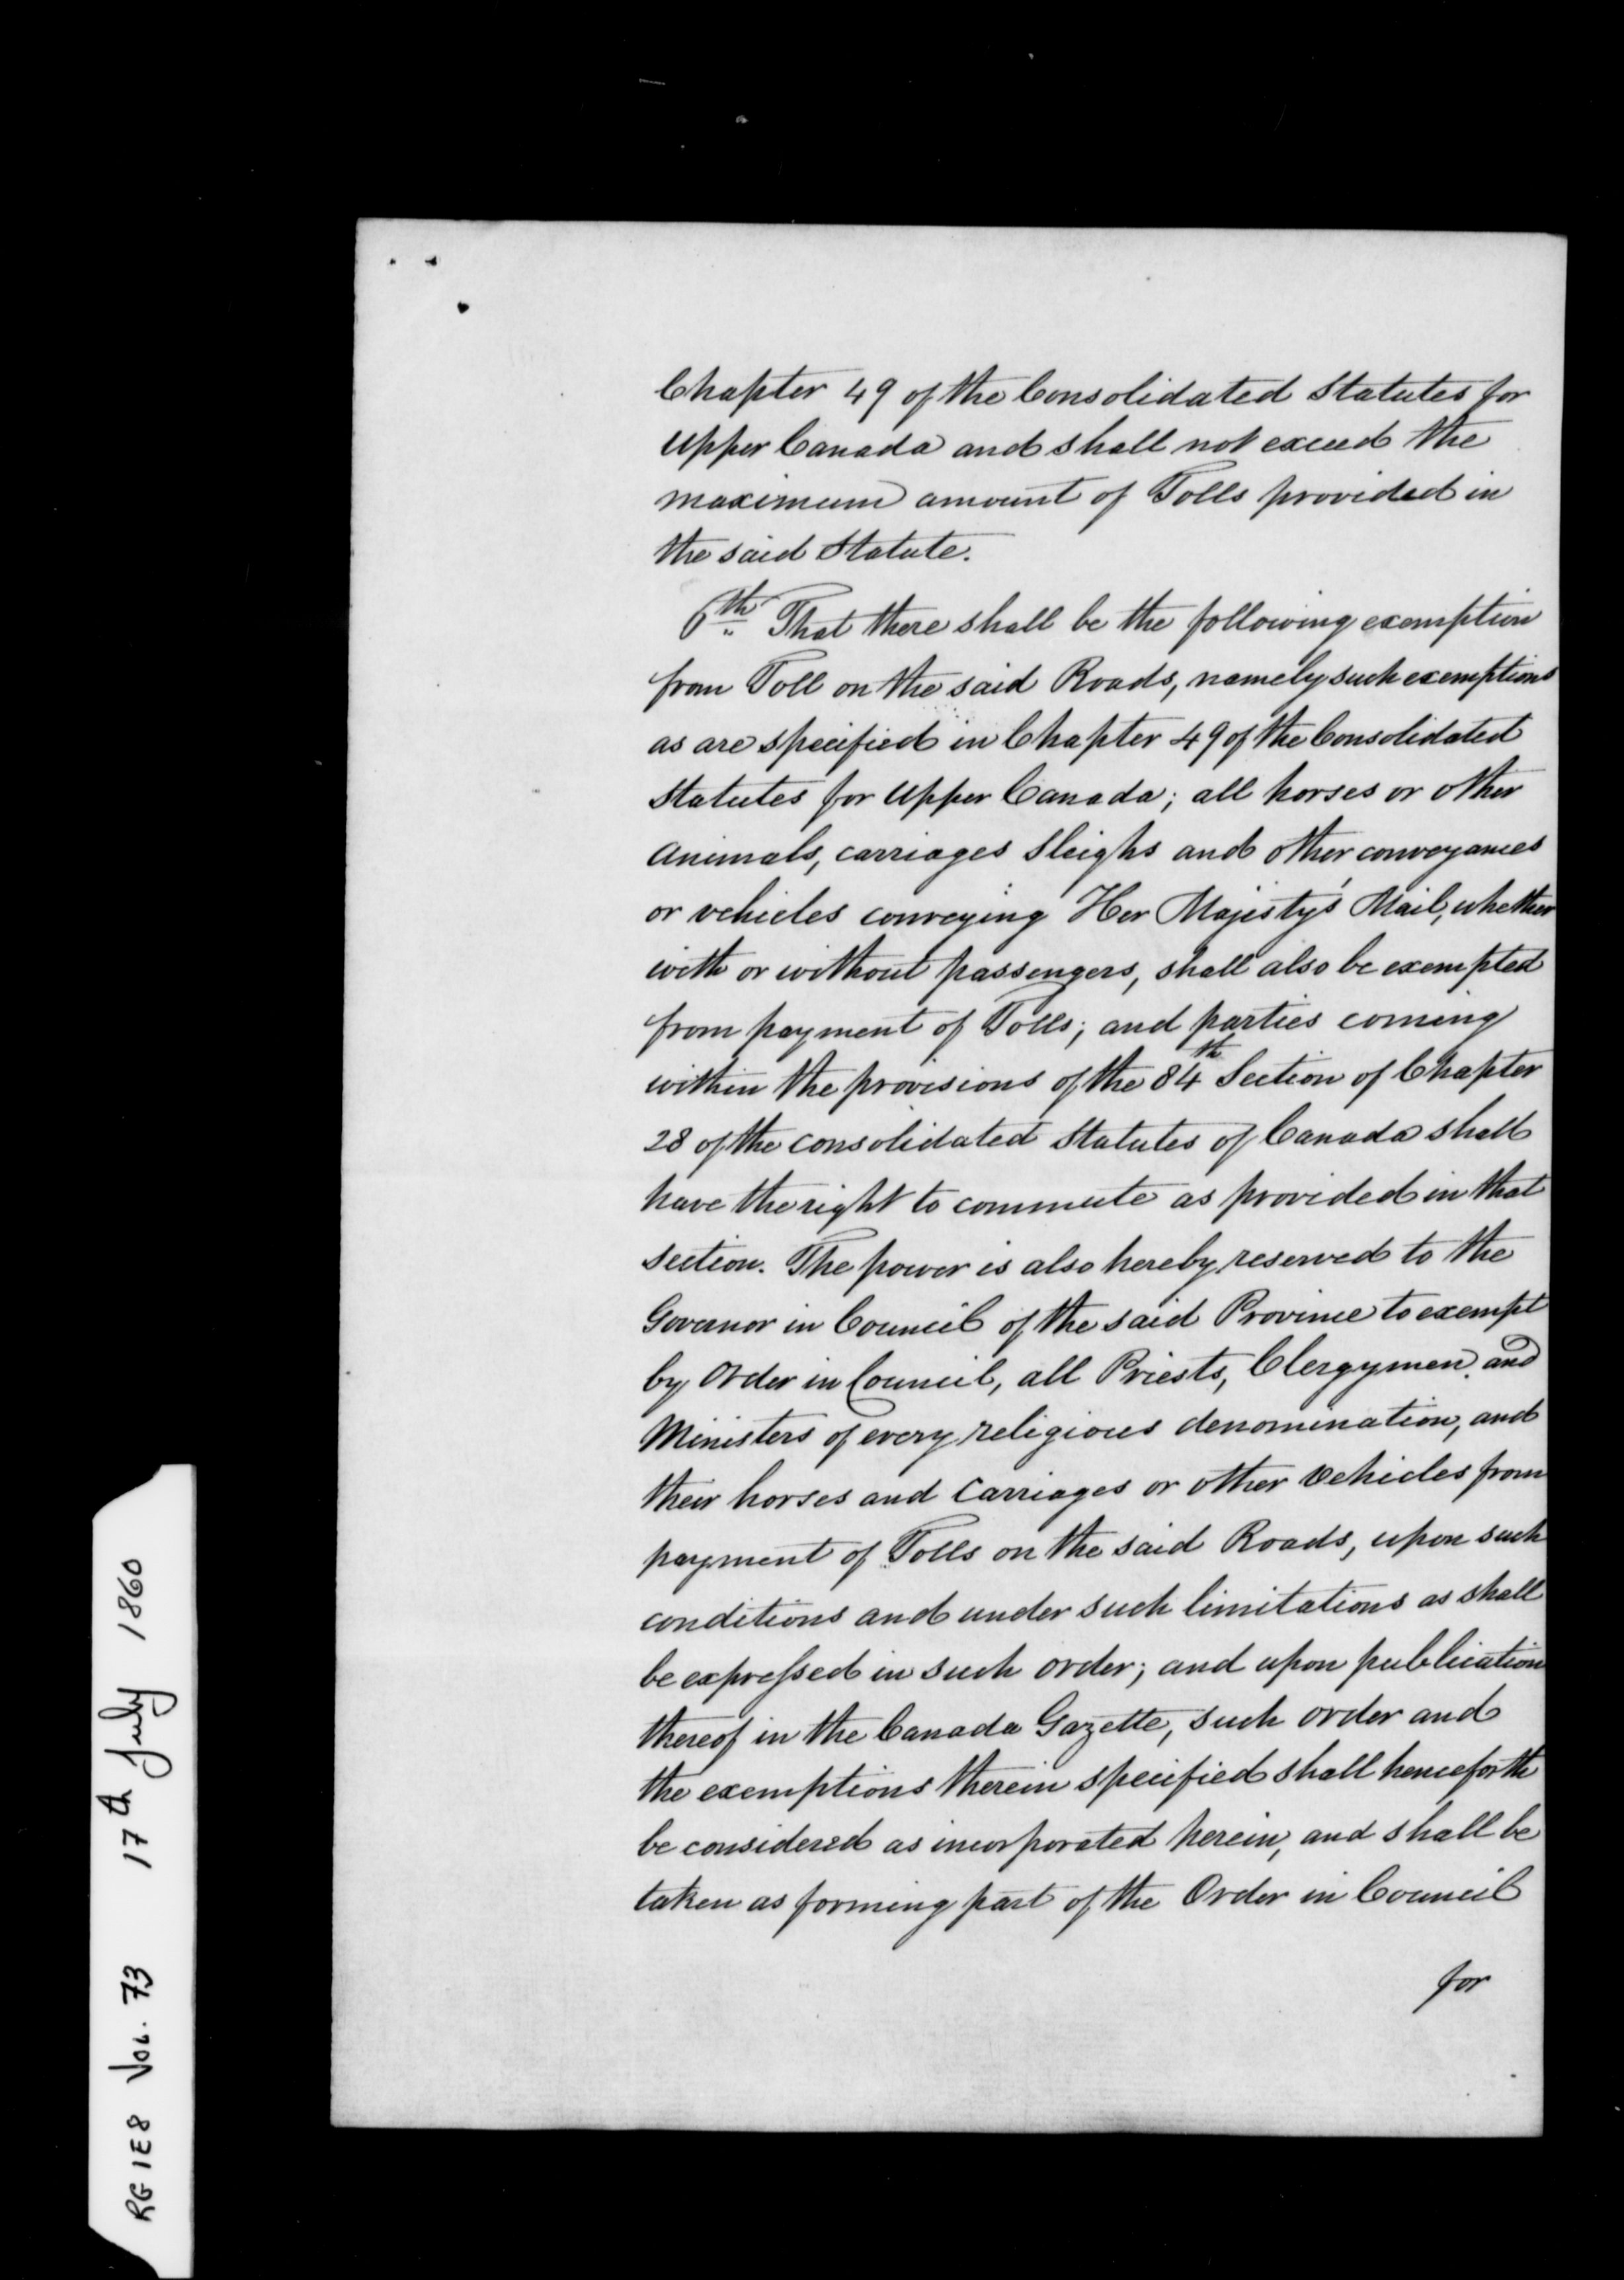 Chapter 49 of the Consolidated Statutes for
Upper Canada and shall not exceed the
maximum amount of Tolls provided in
the said Statute.
6th That there shall be the following exemption
from Toll on the said Roads, namely such exemptions
as are specified in Chapter 49 of the Consolidated
Statutes for Upper Canada; all horses or other
animals, carriages Sleighs and other conveyances
or vehicles conveying Her Majesty's Mail, whether
with or without passengers, shall also be exempted
from payment of Tolls; and parties coming
within the provisions of the 84th Section of Chapter
28 of the consolidated Statutes of Canada shall
have the right to commute as provided in that
section. The power is also hereby reserved to the
Governor in Council of the said Province to exempt
by Order in Council, all Priests, Clergymen, and
Ministers of every religious denomination, and
their horses and Carriages or other Vehicles from
payment of Tolls on the said Roads, upon such
conditions and under such limitations as shall
be expressed in such order; and upon publication
thereof in the Canada Gazette, such order and
the exemptions therein specified shall henceforth
be considered as incorporated herein, and shall be
taken as forming part of the Order in Council
for
RG 1 E8 Vol. 73 17th July 1860